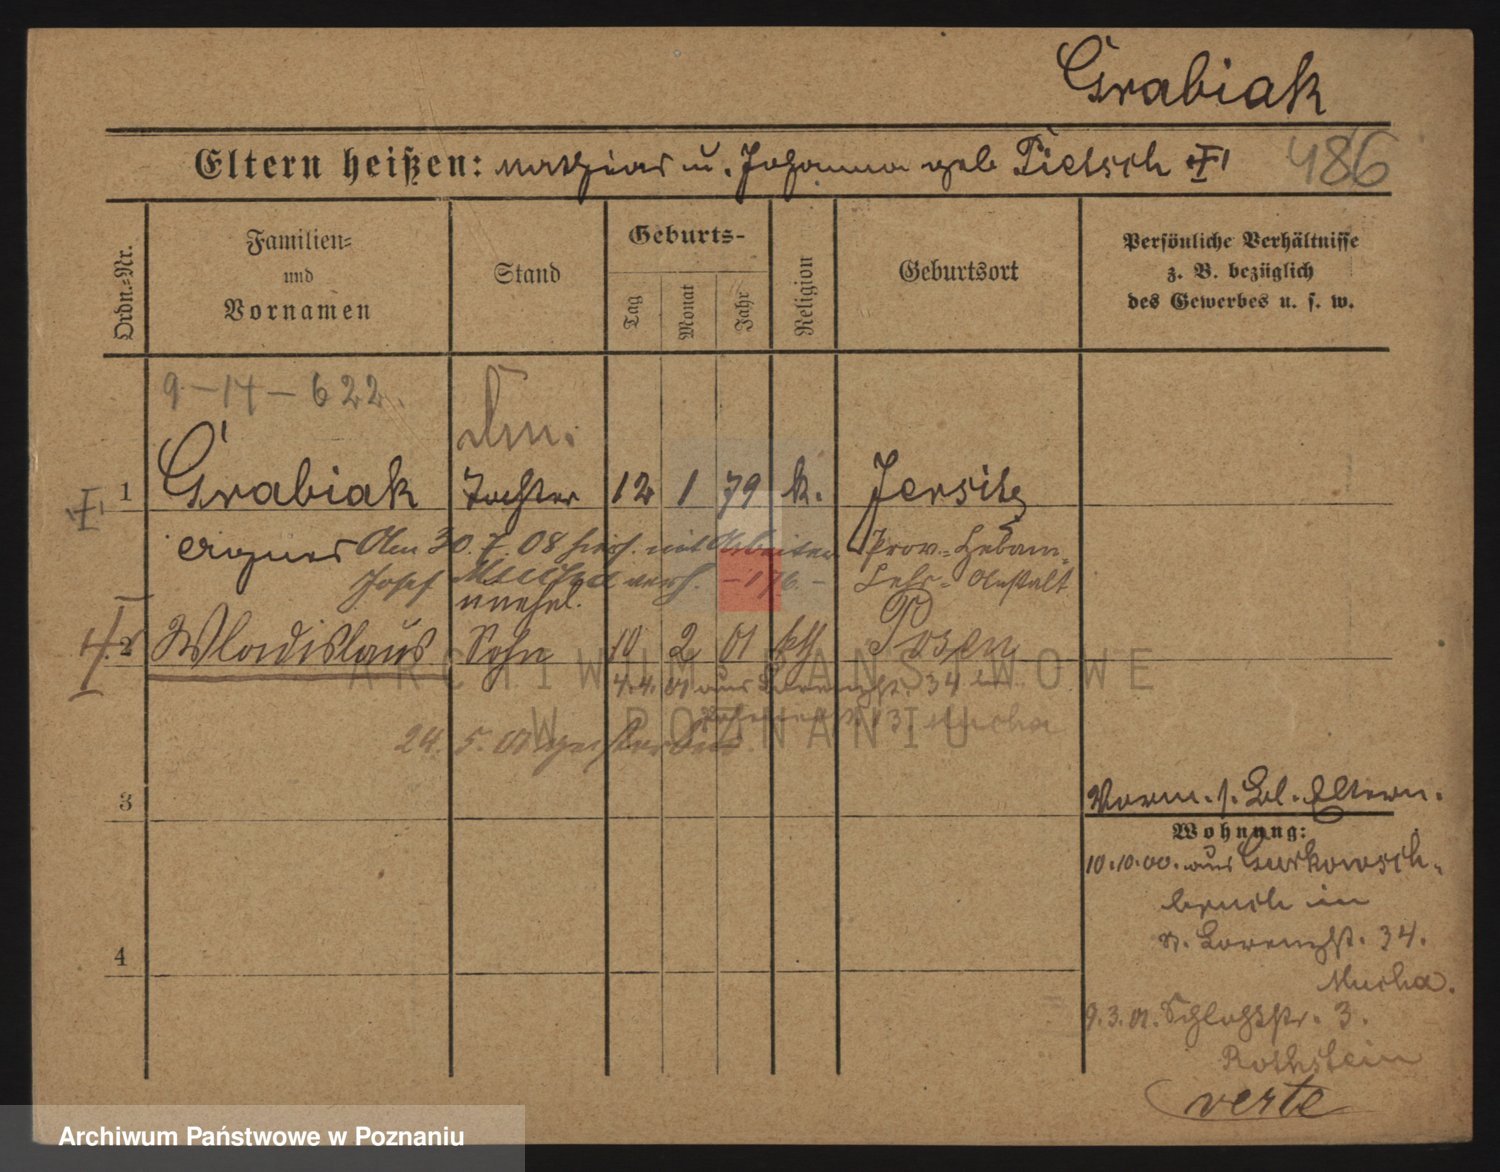 Grabiak
Eltern heißen: Mathias u. Johanna geb Pietsch
486
Ordn.-Nr.
Familien-
und
Vornamen
Stand
Geburts-
Tag
Monat
Jahr
Religion
Geburtsort
Persönliche Verhältnisse
z. B. bezüglich
des Gewerbes u. s. w.
9-14-622.
1 Grabiak Tochter 12 1 79 k. Jersitz
Agnes Am 30.7.08 hies. mit Arbeiter Prov.-Hebam-
Josef verh. -176.- Lehr-Anstalt
unehel.
2 Wladislaus Sohn 10 2 01 kth Posen
4.4.01 aus Lorenzstr. 34 in
13 Mucha
24.5.01 gestorben
3
Vorm. s. Bl. Eltern.
Wohnung:
10.10.00. aus Gurkowsch-
bruch in
St. Lorenzstr. 34.
4
Mucha.
9.3.01. Schloßstr. 3.
Rothstein
verte
ARCHIWUM PAŃSTWOWE
W POZNANIU
Archiwum Państwowe w Poznaniu